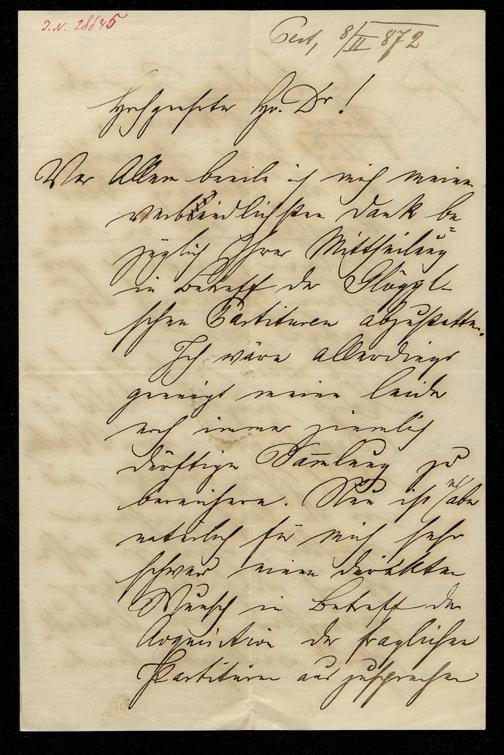 J.N. 28645
Pest, 8/II 872
Hochgeehrter Hr. Dr!
Vor Allem beeile ich mich meinen
verbindlichsten Dank be-
züglich Ihrer Mittheilung
in Betreff der Glöggl-
schen Partituren abzustatten.
Ich wäre allerdings
geneigt meine leider
noch immer ziemlich
dürftige Sammlung zu
bereichern. Nun ist es aber
natürlich für mich sehr
schwer einen direkten
Wunsch in Betreff der
Acquisition der fraglichen
Partituren auszusprechen